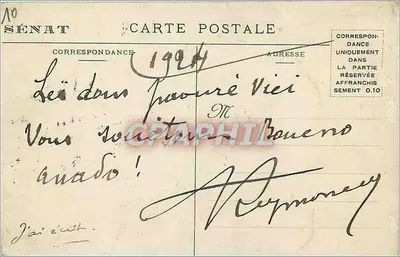 10
SÉNAT CARTE POSTALE
CORRESPONDANCE ADRESSE
CORRESPON-
DANCE
UNIQUEMENT
DANS
LA PARTIE
RÉSERVÉE
AFFRANCHIS
SEMENT 0.10
(1924
Leï dous paouré Viei
M
Vous souictoun Boueno
CPAPHIL.COM
anado!
J'ai écrit.